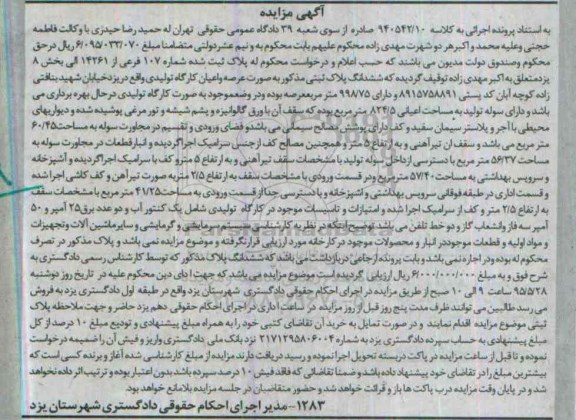 آگهی مزایده
به استناد پرونده اجرائی به کلاسه ۹۴۰۵۴۲/۱۰ صادره از سوی شعبه ۳۹ دادگاه عمومی حقوقی تهران له حمید رضا حیدزی با وکالت فاطمه
حجتی وعلیه محمد و اکبر هر دو شهرت مهدی زاده محکوم علیهم بابت محکوم به و نیم عشر دولتی متضامنا مبلغ ۶/۰۹۵/۰۳۲/۰۷۰ ریال در حق
محکوم وصندوق دولت مدیون می باشند که حسب اعلام و درخواست محکوم له پلاک ثبت شده شماره ۱۰۷ فرعی از ۱۴۲۶۱ الی بخش ۸
یزد متعلق به اکبر مهدی زاده توقیف گردیده که ششدانگ پلاک ثبتی مذکور به صورت عرصه واعیان کارگاه تولیدی واقع در یزد خیابان شهید بنافتی
زاده کوچه آبان کد پستی ۸۹۱۵۷۵۸۸۹۱ و دارای ۹۹۸/۷۵ متر مربع عرصه بوده ودر وضع موجود به صورت کارگاه تولیدی در حال بهره برداری می
باشد و دارای سوله تولید به مساحت اعیانی ۸۲۴/۵ متر مربع بوده که سقف آن با ورق گالوانیزه و پشم شیشه و تور مرغی پوشیده شده و دیوارهای
محیطی با آجر و پلاستر سیمان سفید و کف دارای پوشش مصالح سیمانی می باشد و فضای ورودی و تقسیم در مجاورت سوله به مساحت ۶۰/۴۵
متر مربع می باشد و سقف ان تیرآهنی و به ارتفاع ۵ متر و همچنین مصالح کف از جنس سرامیک اجرا گردیده و انبار قطعات در مجاورت سوله به
مساحت ۵۶/۳۷ متر مربع با دسترسی از داخل سوله تولید با مشخصات سقف تیرآهنی و به ارتفاع ۵ متر و کف با سرامیک اجرا گردیده و آشپزخانه
و سرویس بهداشتی به مساحت ۵۷/۴۰ متر مربع و در قسمت ورودی با مشخصات سقف به ارتفاع ۲/۵ متر به صورت تیرآهن و کف کاشی اجرا شده
و قسمت اداری در طبقه فوقانی سرویس بهداشتی و آشپزخانه و با دسترسی جدا از قسمت ورودی به مساحت ۴۱/۲۵ متر مربع با مشخصات سقف
به ارتفاع ۲/۵ متر و کف از سرامیک اجرا شده و امتیازات و تاسیسات موجود در کارگاه تولیدی شامل یک کنتور آب و دو عدد برق ۲۵ آمپر و ۵۰
آمپر سه فاز وانشعاب گاز و دو خط تلفن می باشد توضیح اینکه در نظریه کارشناسی سرمایشی و گرمایشی و سایر ماشین آلات وتجهیزات
و مواد اولیه و قطعات موجود در انبار و محصولات موجود در کارخانه مورد ارزیابی قرار نگرفته و موضوع مزایده نمی باشد و پلاک مذکور در تصرف
محکوم له بوده ودر اجاره نمی باشد و بابت پرونده ارجاعی در بازداشت می باشد که ششدانگ پلاک مذکور که توسط کارشناس رسمی دادگستری به
شرح فوق و به مبلغ ۶/۰۰۰/۰۰۰/۰۰۰ ریال ارزیابی گردیده است موضوع مزایده می باشد که جهت ادای دین محکوم علیه در تاریخ روز دوشنبه
۹۵/۵/۲۸ ساعت ۹ الی ۱۰ صبح از طریق مزایده در اجرای احکام حقوقی دادگستری شهرستان یزد واقع در طبقه اول دادگستری یزد به فروش
می رسد طالبین می توانند ظرف مدت پنج روز قبل از روز مزایده در ساعت اداری در اجرای احکام حقوقی دهم یزد حاضر و جهت ملاحظه پلاک
ثبتی موضوع مزایده اقدام نمایند و در صورت تمایل به خرید آن تقاضای کتبی خود را به همراه مبلغ پیشنهادی و تودیع مبلغ ۱۰ درصد از کل
مبلغ پیشنهادی به حساب سپرده دادگستری یزد به شماره ۲۱۷۱۲۹۵۸۰۶۰۰۴ نزد بانک ملی دادگستری واریز و فیش آن را ضمیمه درخواست
نموده و تا قبل از ساعت مزایده در پاکت دربسته تحویل اجرا نموده و رسید دریافت دارند مزایده از مبلغ کارشناسی شده آغاز و برنده کسی است که
بیشترین مبلغ را در تقاضای خود پیشنهاد داده باشد و ضمنا تقاضائی که فاقد فیش ۱۰ درصد سپرده باشد بدون اعتبار بوده و ترتیب اثر داده نخواهد
شد و در پایان وقت مزایده درب پاکت ها باز و قرائت خواهد شد و حضور متقاضیان در جلسه مزایده بلامانع خواهد بود.
۱۲۸۳- مدیر اجرای احکام حقوقی دادگستری شهرستان یزد